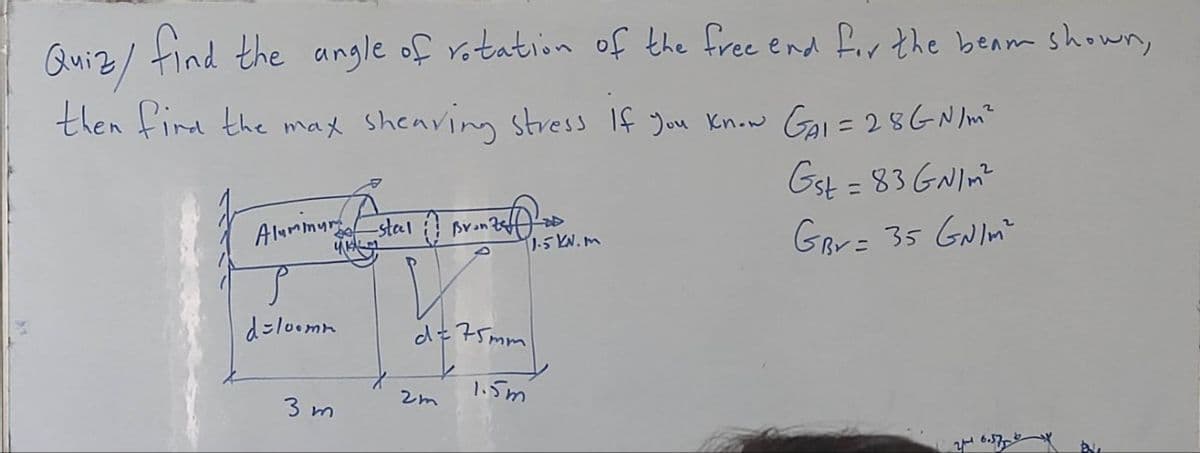 Quiz/ find the angle of rotation of the free end for the beam shown,
then find the max shearing stress if you know GAl = 28 GN/m²
Gst = 83 GN/m²
GBr = 35 GN/m²
Aluminum steel Bronze
1.5 KN.m
d=100mm
d=75mm
3 m
2m
1.5m